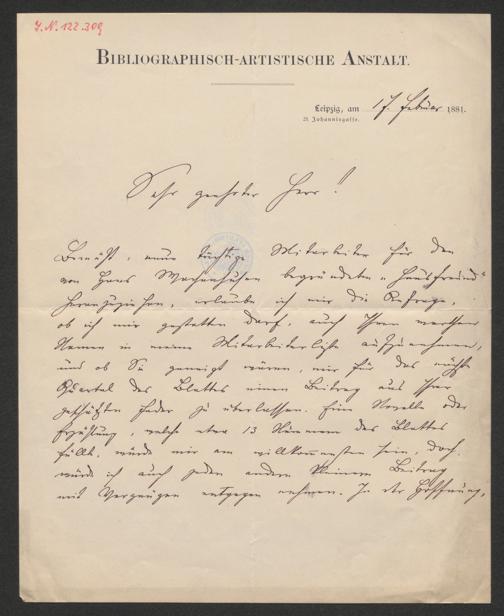 J.N. 122.309
BIBLIOGRAPHISCH-ARTISTISCHE ANSTALT.
Leipzig, am 17. Februar 1881.
21 Johannisgasse.
Sehr geehrter Herr!
Bemüht, neue tüchtige Mitarbeiter für den
von Hans Wachenhusen begründeten „Hausfreund“
heranzuziehen, erlaube ich mir die Anfrage,
ob ich mir gestatten darf, auch Ihren werthen
Namen in meine Mitarbeiterliste aufzunehmen,
und ob Sie geneigt wären, mir für das nächste
Quartal des Blattes einen Beitrag aus Ihrer
geschätzten Feder zu überlassen. Eine Novelle oder
Erzählung, welche etwa 13 Nummern des Blattes
füllt, würde mir am willkommensten sein, doch
würde ich auch jeden andern kleinern Beitrag
mit Vergnügen entgegen nehmen. In der Hoffnung,